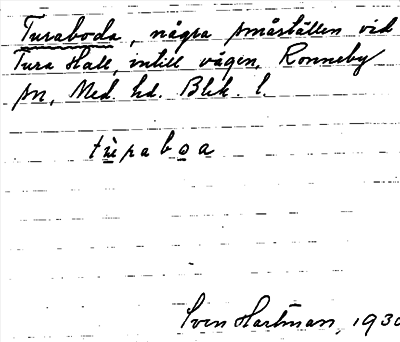 Turaboda, några småställen vid
Tura Hall, intill vägen, Ronneby
sn, Med. hd. Blek. l.
Sven Hartman, 1930